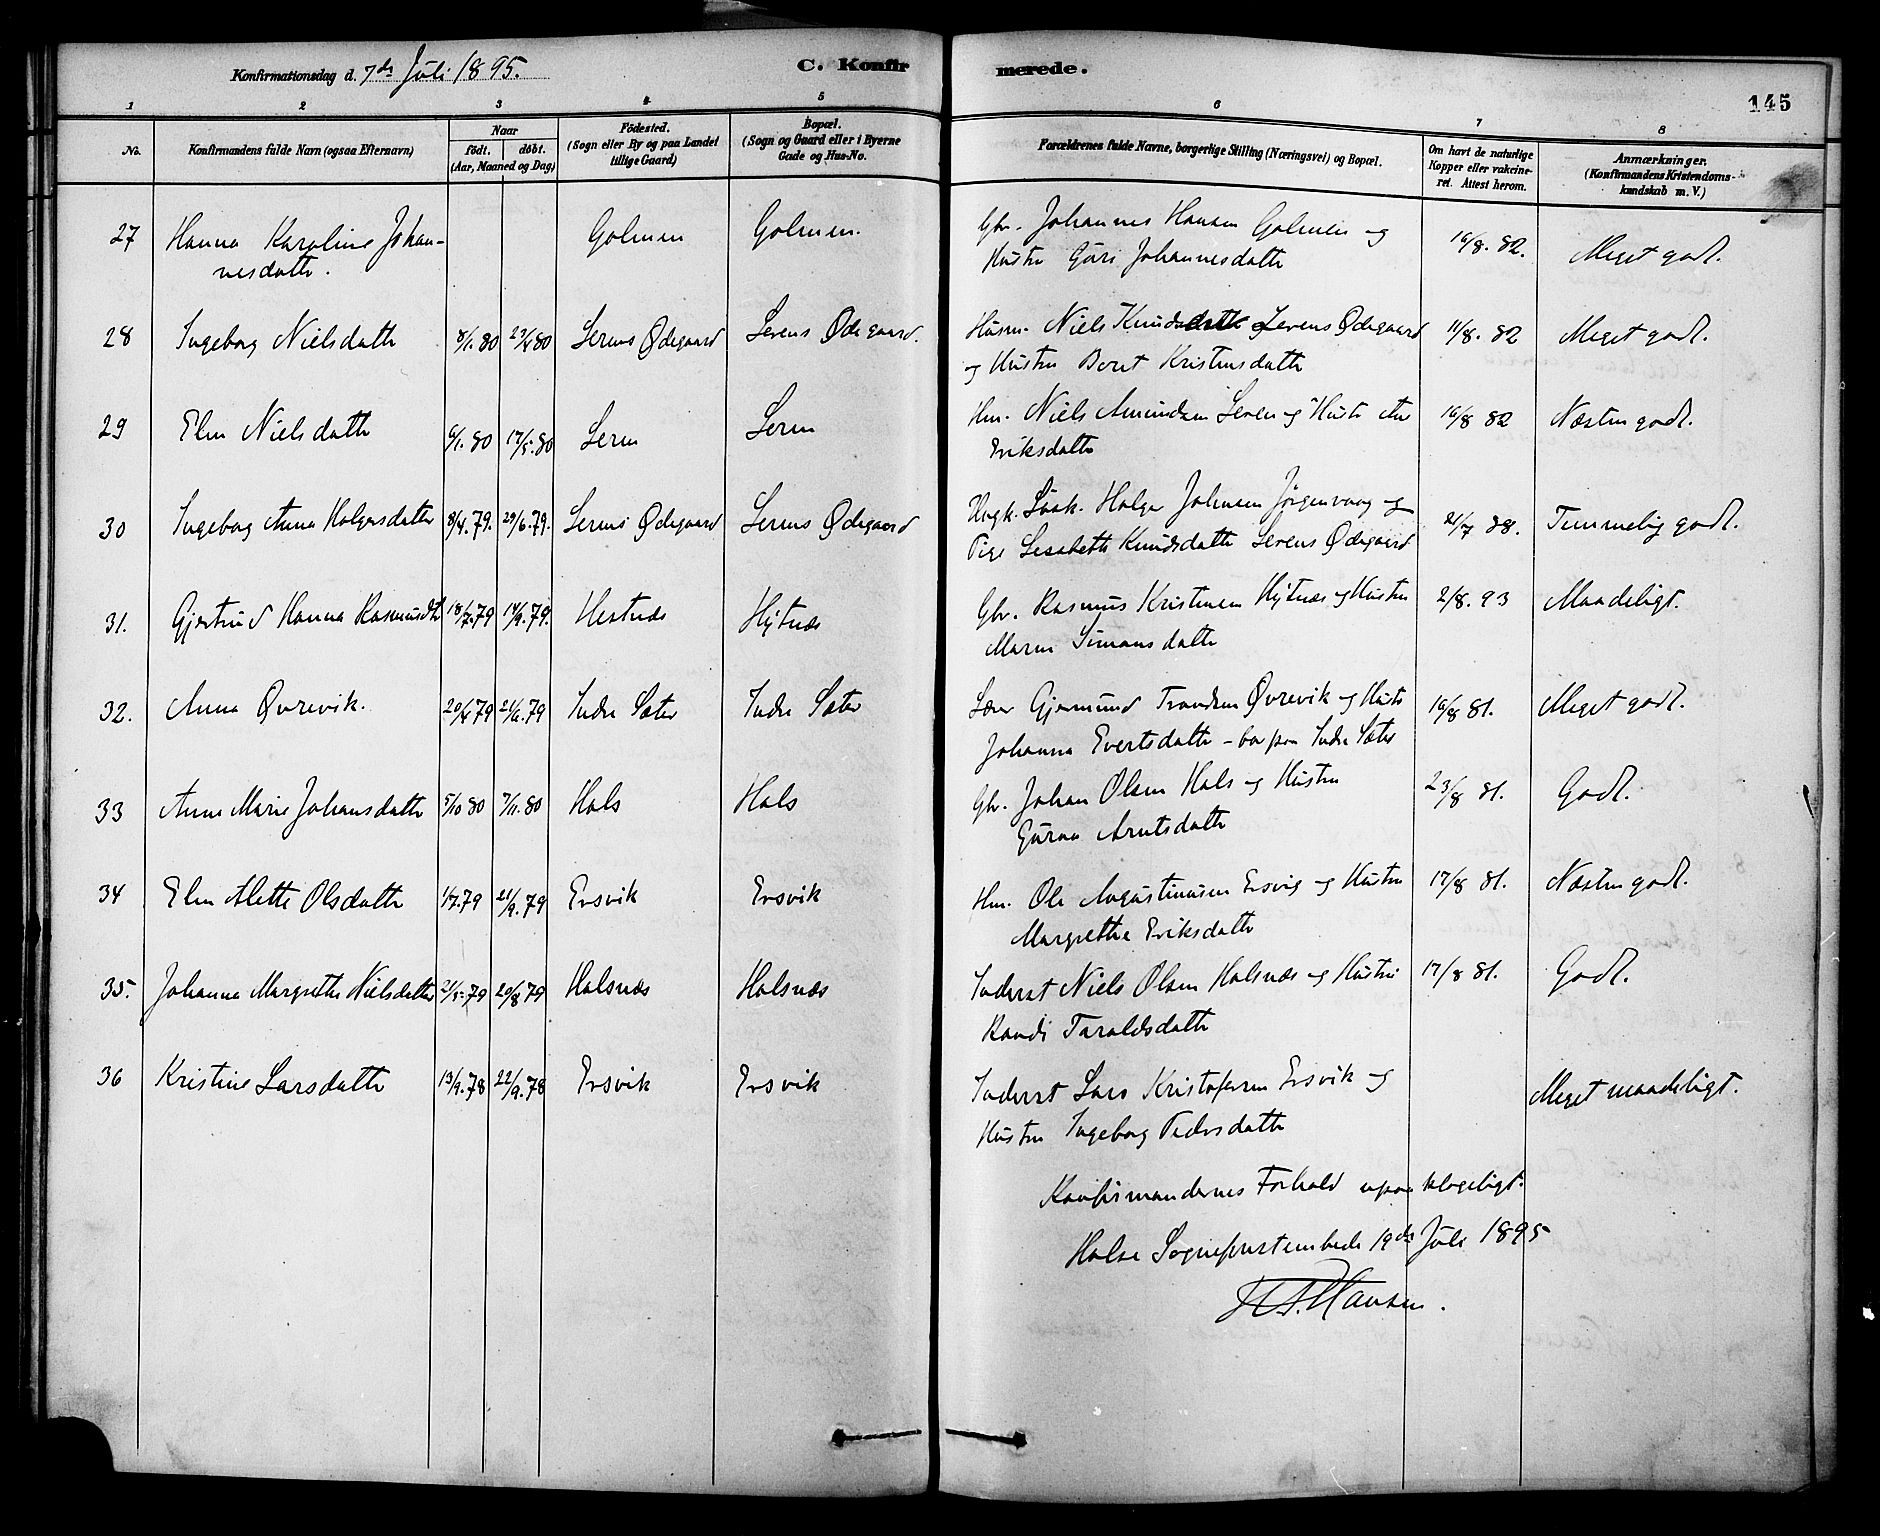 Konfirmationsdag d. 7de Juli 1895.
C. Konfirmerede.
145
1 2 3 4 5 6 7 8
No.
Konfirmandens fulde Navn (ogsaa Efternavn)
Naar
født. døbt.
(Aar, Maaned og Dag)
Födested.
(Sogn eller By og paa Landet
tillige Gaard)
Bopæl.
(Sogn og Gaard eller i Byerne
Gade og Hus-No.
Forældrenes fulde Navne, borgerlige Stilling (Næringsvei) og Bopæl.
Om havt de naturlige
Kopper eller vakcine-
ret. Attest herom.
Anmærkninger.
(Konfirmandens Kristendoms-
kundskab m. V.)
27 Hanna Karoline Johan- Golmen Golmen. Gbr. Johannes Hansen Golmen og 16/8. 82. Meget godt.
nesdatter. Hustru Guri Johannesdatter
28 Ingeborg Nielsdatter 8/1. 80 23/4 80 Lerens Ødegaard Lerens Ødegaard. Husm. Niels Knuds Lerens Ødegaard 11/8. 82 Meget godt.
og Hustru Beret Kristensdatter
29 Elen Nielsdatter 6/1. 80 17/5. 80 Leren Leren Hm. Niels Amundsen Leren og Hustr 16/8 82 Næsten godt.
Eriksdatter
30 Ingeborg Anna Holgersdatter 8/4. 79. 29/6. 79. Lerens Ødegaard Lerens Ødegaard Ungk. Holger Johnsen Jørgenvaag og 21/7 88. Temmelig godt.
Pige Lisabeth Knudsdatter Lerens Ødegaard
31. Gjertrud Hanna Rasmusdtr 18/7. 79 14/9. 79. Hestnæs Hytnæs Gbr. Rasmus Kristensen Hytnæs og Hustru 2/8. 93 Maadeligt.
Maren Simonsdatter
32. Anna Øvrevik. 20/4 79 21/6. 79 Indre Sæter Indre Sæter Lærer Gjermund Trondsen Øvrevik og Hustr 16/8 81. Meget godt.
Johanna Evertsdatter – bor paa Indre Sæter
33 Anne Marie Johansdatter 5/10 80 7/11. 80 Hals Hals Gbr. Johan Olsen Hals og Hustru 23/8 81. Godt.
Guroe Arntsdatter
34 Elen Alette Olsdatter 1/7. 79 21/9. 79 Ersvik Ersvik Hm. Ole Augustinusen Ersvig og Hustru 17/8 81. Næsten godt.
Margrethe Eriksdatter
35. Johanna Margrethe Nielsdatter 21/5. 79 20/8 79 Halsnæs Halsnæs Inderst Niels Olsen Halsnæs og Hustru 17/8 81. Godt.
Randi Taraldsdatter
36 Kristine Larsdatter 13/9. 78 22/9. 78 Ersvik Ersvik Inderst Lars Kristofersen Ersvik og Meget maadeligt.
Hustru Ingeborg Pedersdatter
Konfirmandernes Forhold upaaklageligt.
Halse Sogneprestembede 19de Juli 1895
Hansen.